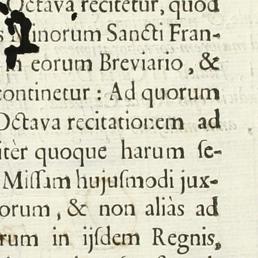 Octava recitetur, quod
Minorum Sancti Fran-
eorum Breviario, &
continetur: Ad quorum
Octava recitationem ad
itèr quoque harum ſe-
Miſſam hujuſmodi jux-
orum, & non aliàs ad
rum in ijſdem Regnis,